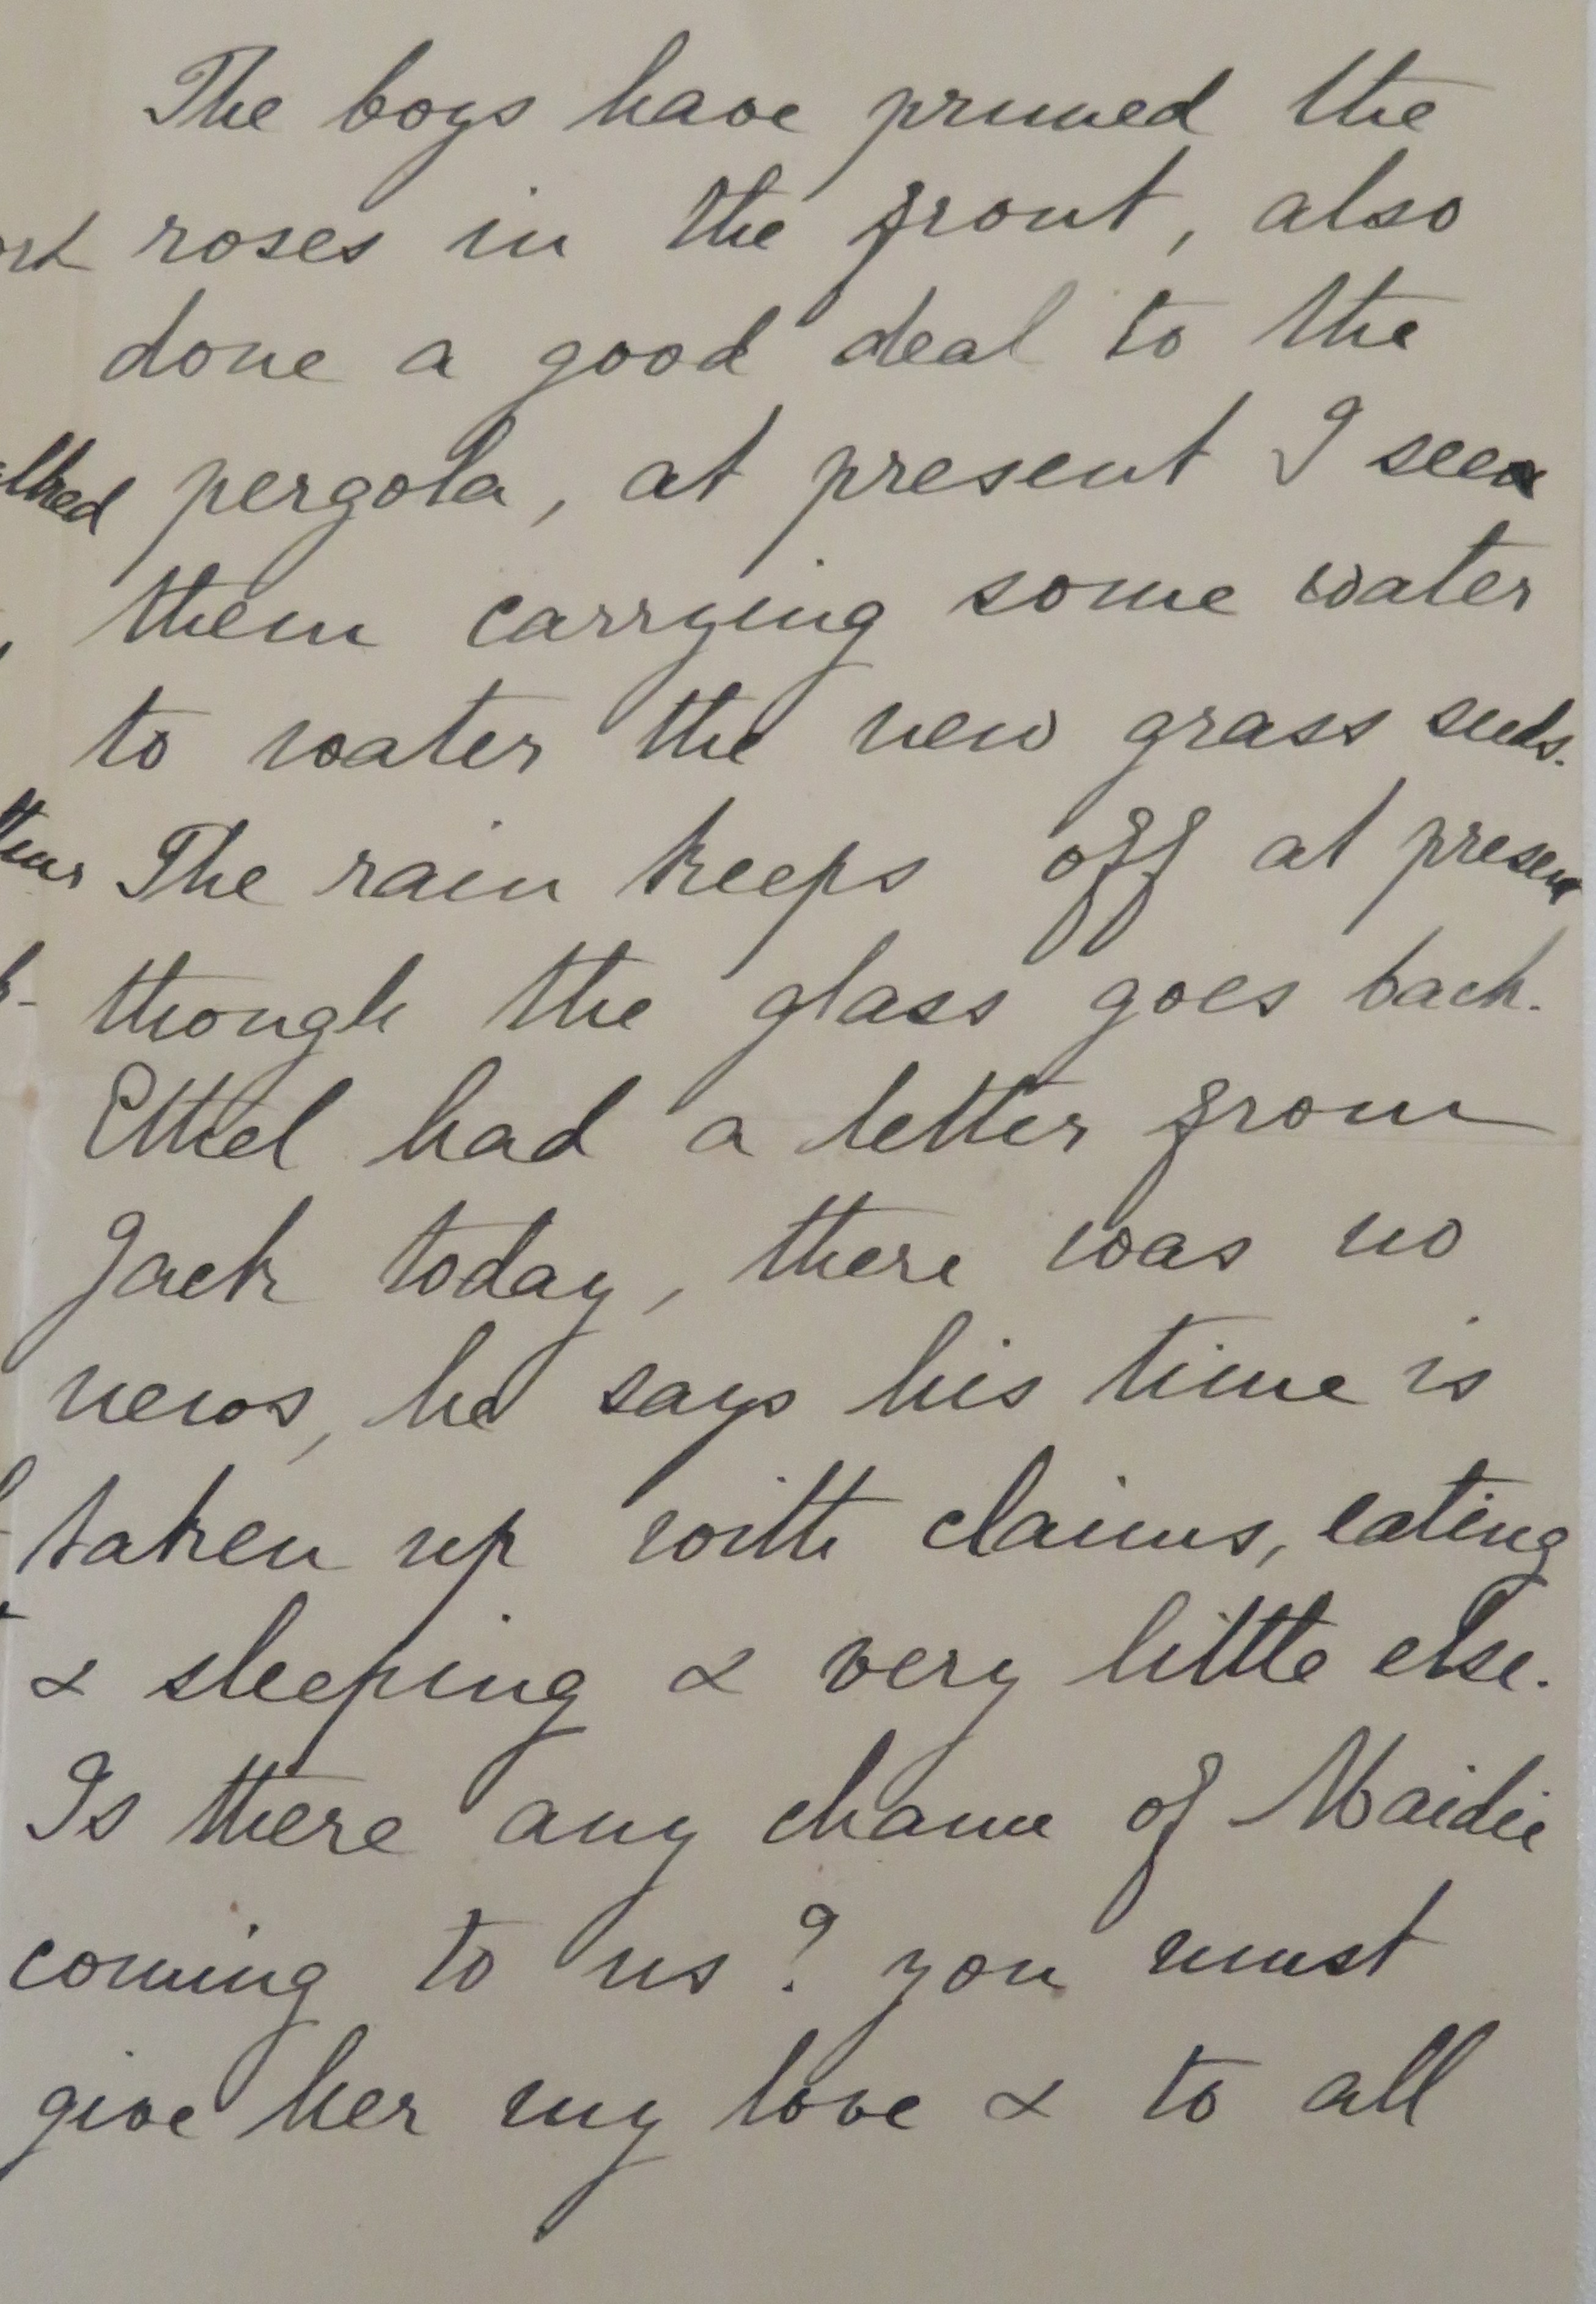 The boys have pruned the
roses in the front, also
done a good deal to the
pergola, at present I see
them carrying some water
to water the new grass seeds.
The rain keeps off at present
though the glass goes back.
Ethel had a letter from
Jack today, there was no
news, he says his time is
taken up with claims, eating
& sleeping & very little else.
Is there any chance of Maidie
coming to us? you must
give her my love & to all